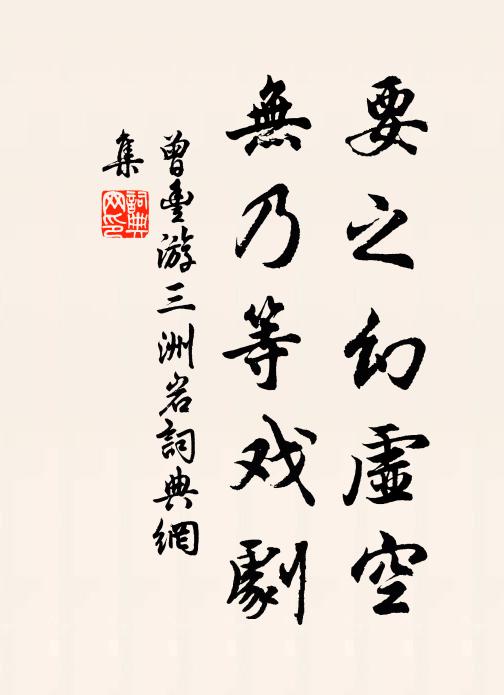 要之幻虛空
無乃等戏劇
曾豐游三洲岩詞典網
集
詞典网印